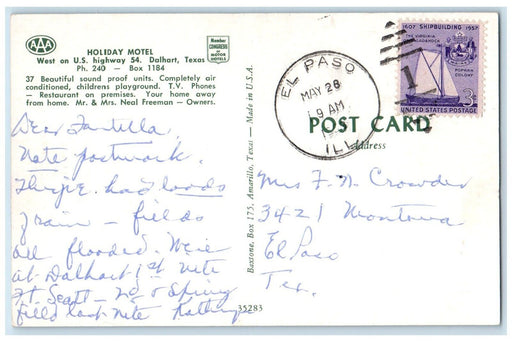 AAA
HOLIDAY MOTEL
West on U.S. highway 54. Dalhart, Texas
Ph. 240 — Box 1184
Member
CONGRESS
of
MOTOR
HOTELS
37 Beautiful sound proof units. Completely air
conditioned, childrens playground. T.V. Phones
- Restaurant on premises. Your home away
from home. Mr. & Mrs. Neal Freeman - Owners.
Dear
Note postmark.
They've had loads
rain — fields
all flooded. We're
at Dalhart 1st nite
Ft. Scott —
field last nite
Baxtone, Box 175, Amarillo, Texas — Made in U.S.A.
35283
EL PASO
MAY 28
9 AM
ILL.
1
1607 SHIPBUILDING 1957
THE VIRGINIA
OF SAGADAHOCK
POPHAM
COLONY
3¢
UNITED STATES POSTAGE
POST CARD
Address
Mrs F. N. Crowder
3421 Montana
El Paso
Tex.